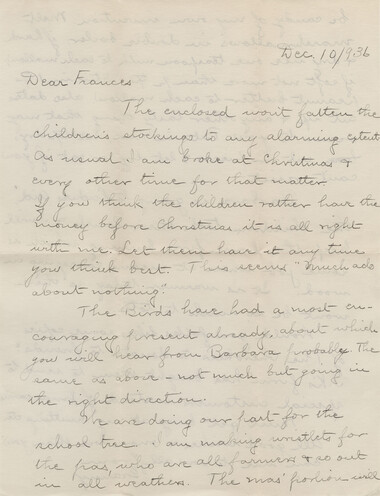 Dec. 10/936
Dear Frances
The enclosed won't fatten the
children's stockings to any alarming extent
As usual I am broke at Christmas &
every other time for that matter
If you think the children rather have the
money before Christmas it is all right
with me. Let them have it any time
you think best. This seems "Much ado
about nothing."
The Birds have had a most en-
couraging present already, about which
you will hear from Barbara probably. The
same as above - not much but going in
the right direction.
We are doing our part for the
school tree. I am making wristlets for
the pas, who are all farmers & so out
in all weathers. The mas' portion will